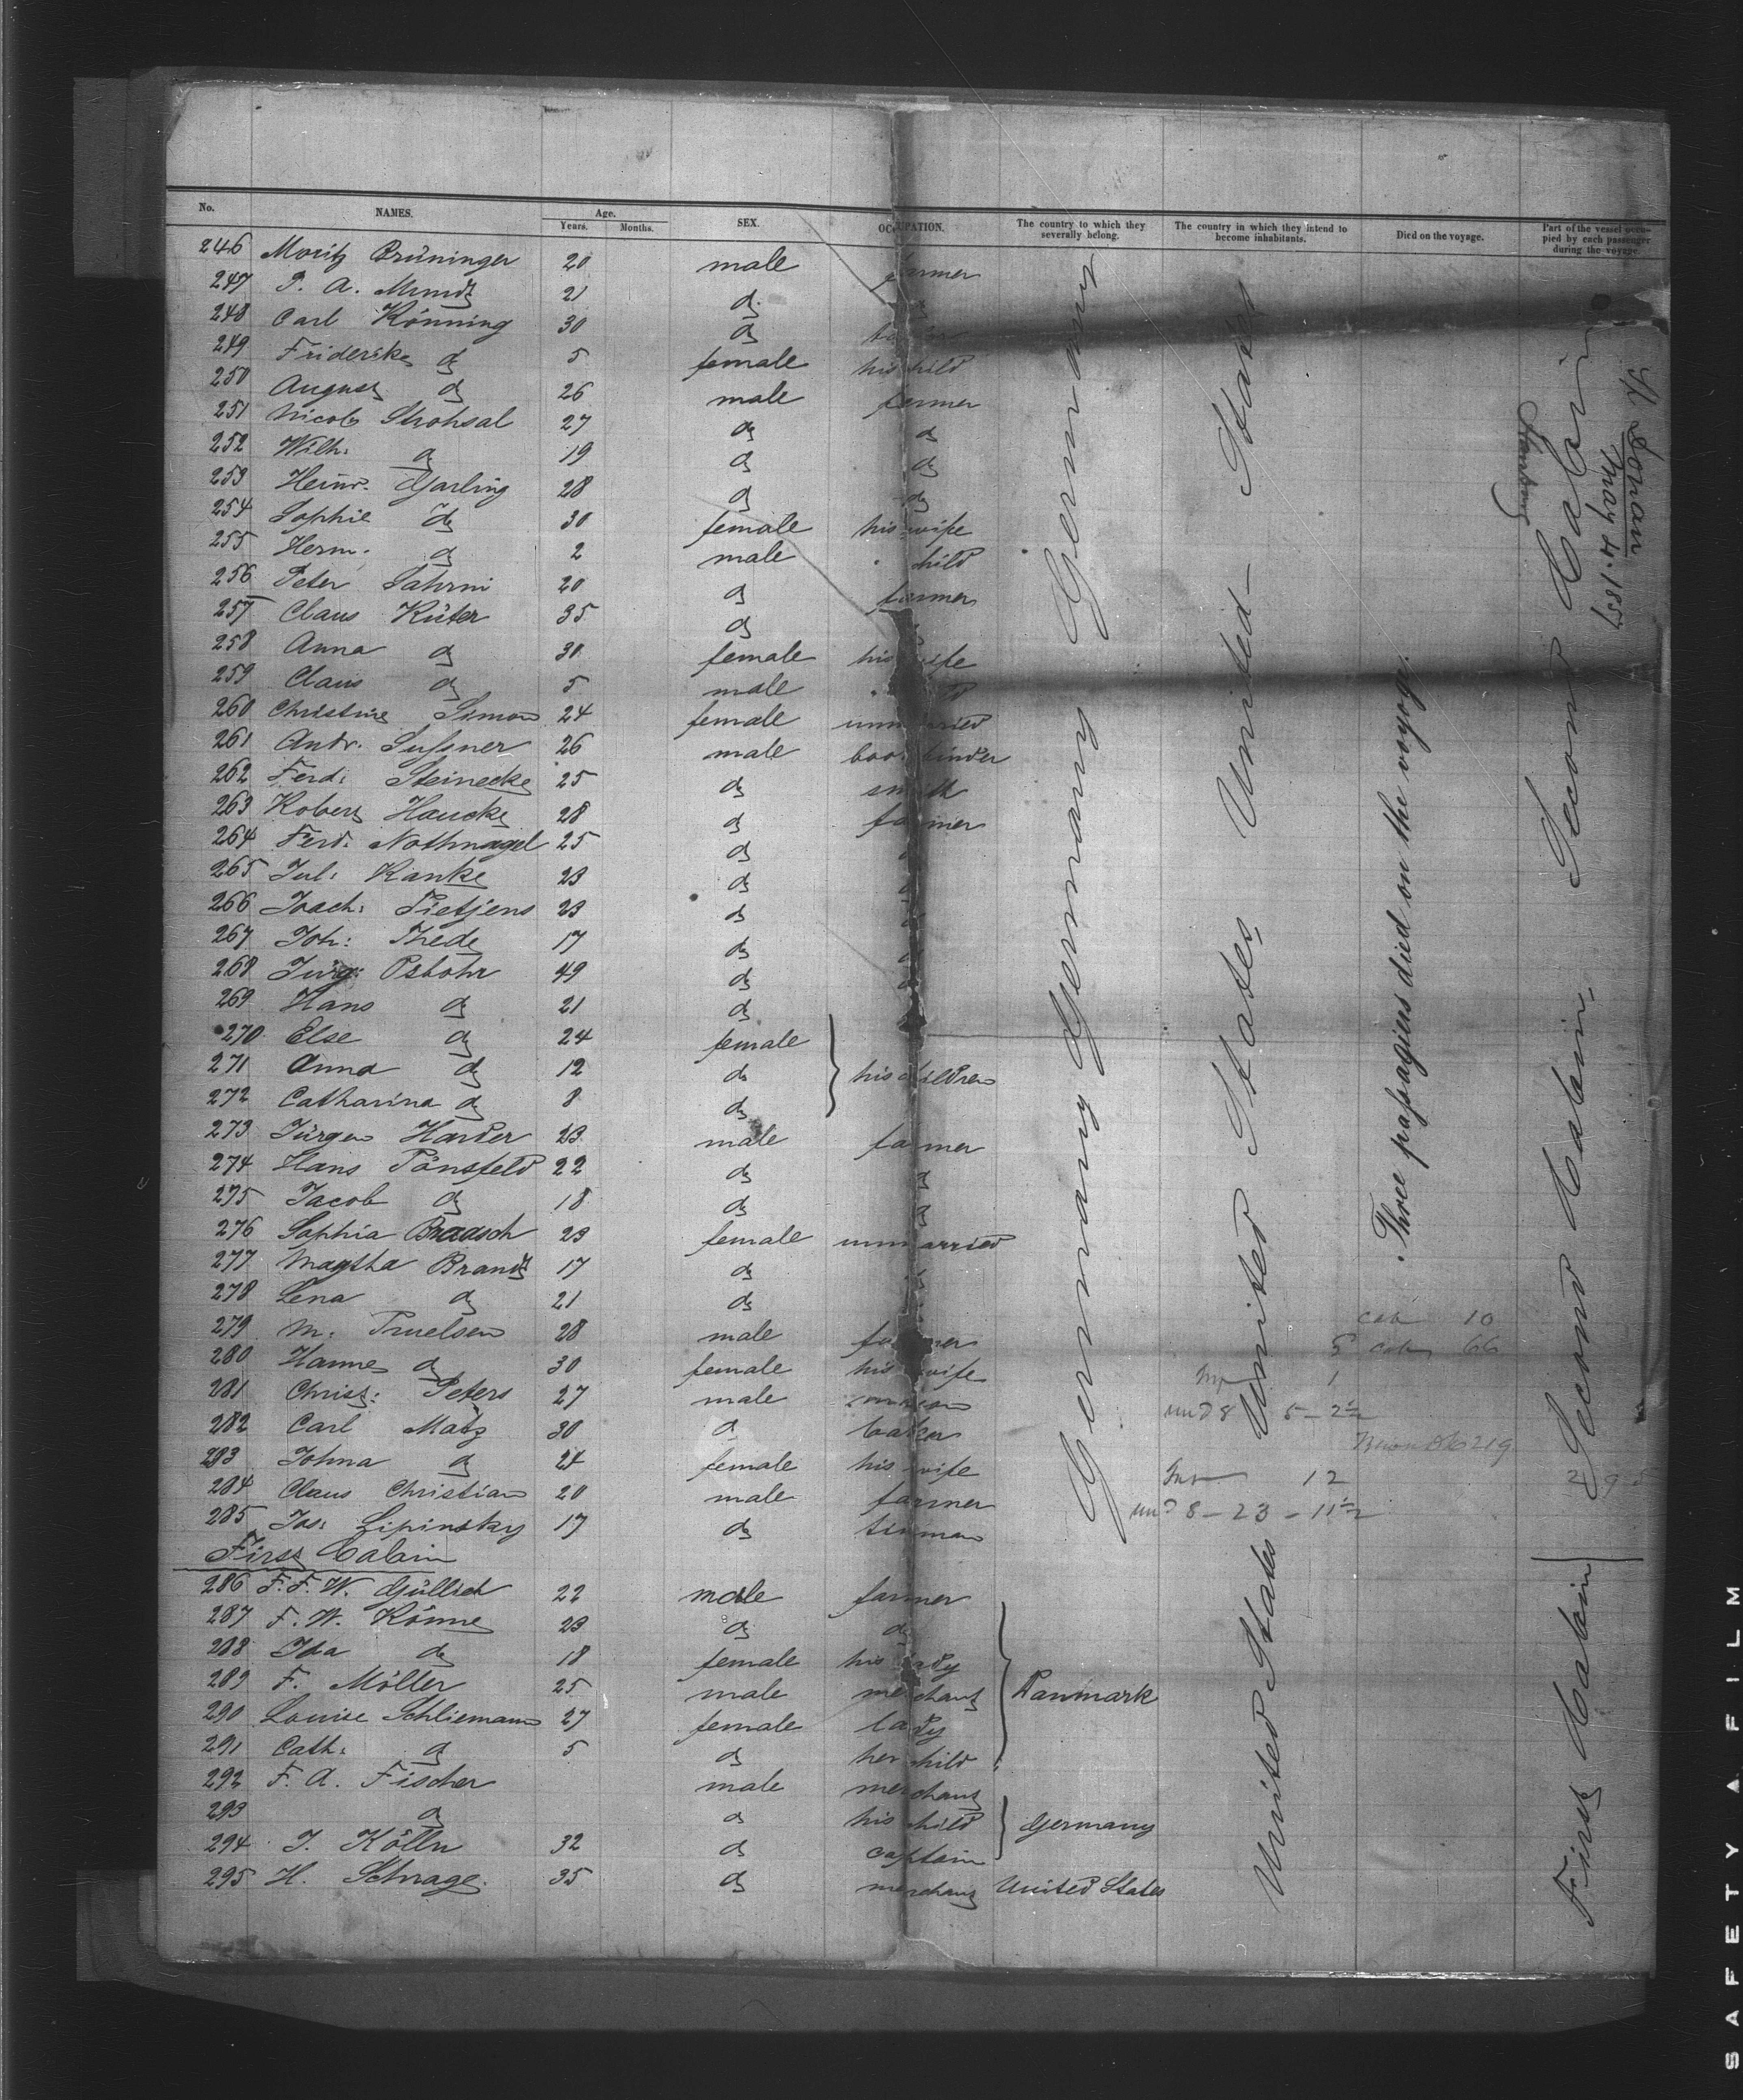 No. NAMES. Age. Years. Months. SEX. OCCUPATION. The country to which they severally belong. The country in which they intend to become inhabitants. Died on the voyage. Part of the vessel occupied by each passenger during the voyage.
246 Moritz Brüninger 20 male farmer
247 P. A. Mundt 21 do
248 Carl Könning 30 do
249 Friderike do 5 female his child
250 August do 26 male farmer
251 Nicol Strohsal 27 do do
252 Wilh: do 19 do do
253 Heinr. Garling 28 do do
254 Sophie do 30 female his wife
255 Herm. do 2 male " child
256 Peter Sahrni 20 do farmer
257 Claus Küter 35 do
258 Anna do 30 female his wife
259 Claus do 5 male " child
260 Christine Simon 24 female unmarried
261 Andr. Sussner 26 male bookbinder
262 Ferd: Steinecke 25 do smith
263 Robert Haucke 28 do farmer
264 Ferd: Nothnagel 25 do
265 Jul: Ranke 23 do
266 Joach: Tietjens 23 do
267 Joh: Thede 17 do
268 Jürg: Pstohr 49 do
269 Hans do 21 do
270 Else do 24 female
271 Anna do 12 do his children
272 Catharina do 8 do
273 Jürgen Harder 23 male farmer
274 Hans Pönsfeld 22 do do
275 Jacob do 18 do do
276 Sophia Braasch 23 female unmarried
277 Magtha Brandt 17 do
278 Lena do 21 do
279 M. Truelsen 28 male farmer
280 Hanne do 30 female his wife
281 Christ: Peters 27 male mason
282 Carl Matz 30 do baker
283 Johna do 24 female his wife
284 Claus Christian 20 male farmer
285 Jos: Lipinsky 17 do tinman
First Cabin
286 F. F. W. Güllich 22 male farmer
287 F. W. Könne 23 do do
288 Ida do 18 female his lady
289 F. Möller 25 male merchant Danmark
290 Louise Schliemann 27 female lady
291 Cath: do 5 do her child
292 F. A. Fischer male merchant
293 do do his child Germany
294 J. Kölln 32 do captain
295 H. Schrage 35 do merchant United States
Germany Germany Germany Germany
United States United States United States
Three passagiers died on the voyage.
Second Cabin Second Cabin
First Cabin
Hamburg
May 4. 1857
cab 10
cab 66
1
und 8 5 - 2½
219
12
und 8 - 23 - 11½
295
SAFETY A FILM